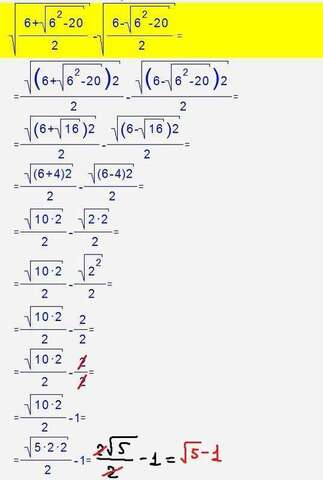 √((6+√(6²-20))/2) - √((6-√(6²-20))/2) =
= √((6+√(6²-20))2)/2 - √((6-√(6²-20))2)/2 =
= √((6+√16)2)/2 - √((6-√16)2)/2 =
= √((6+4)2)/2 - √((6-4)2)/2 =
= √(10·2)/2 - √(2·2)/2 =
= √(10·2)/2 - √(2²)/2 =
= √(10·2)/2 - 2/2 =
= √(10·2)/2 - 2/2 =
= √(10·2)/2 - 1 =
= √(5·2·2)/2 - 1 = 2√5/2 - 1 = √5 - 1